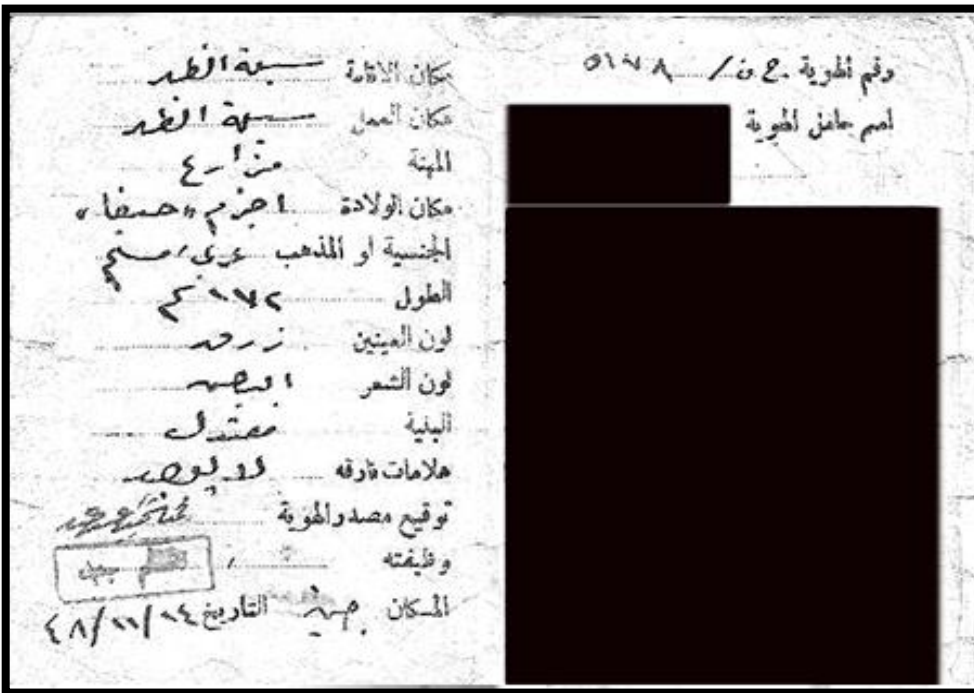 رقم الهوية ج ن/ ٥١٧٨
اسم حامل الهوية
مكان الاقامة سيلة الظهر
مكان العمل سيلة الظهر
المهنة مزارع
مكان الولادة اجزم "حيفا"
الجنسية او المذهب عربي/مسلم
الطول ١٧٢ سم
لون العينين زرق
لون الشعر ابيض
البنية معتدل
علامات فارقه لا يوجد
توقيع مصدر الهوية
وظيفته
المكان جنين التاريخ ٢٤/١١/٤٨